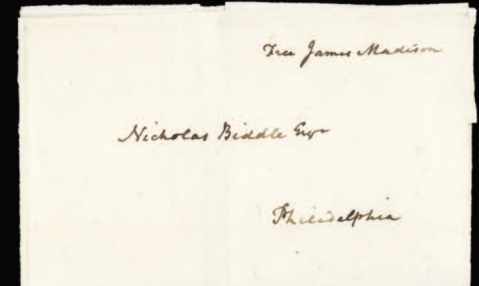 Free James Madison
Nicholas Biddle Esqr
Philadelphia